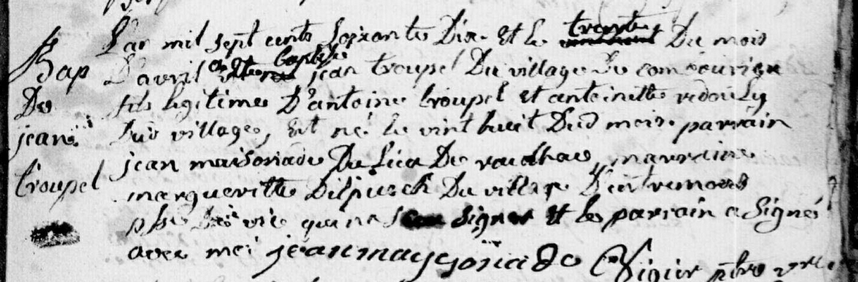 Bap
De
jean
troupel
L'an mil sept cents soixante Dix Et le trante Du mois
D'avril a été Baptisé jean troupel Du village De
fils legitime D'antoine troupel Et antoinette
Dud village, Est né le vint huit Dud mois parrain
jean maisoniade Du Lieu De marraine
margueritte Du village D'entremons
qui ne signer Et le parrain a signé
avec moi jean maysoniade Vigier ptre